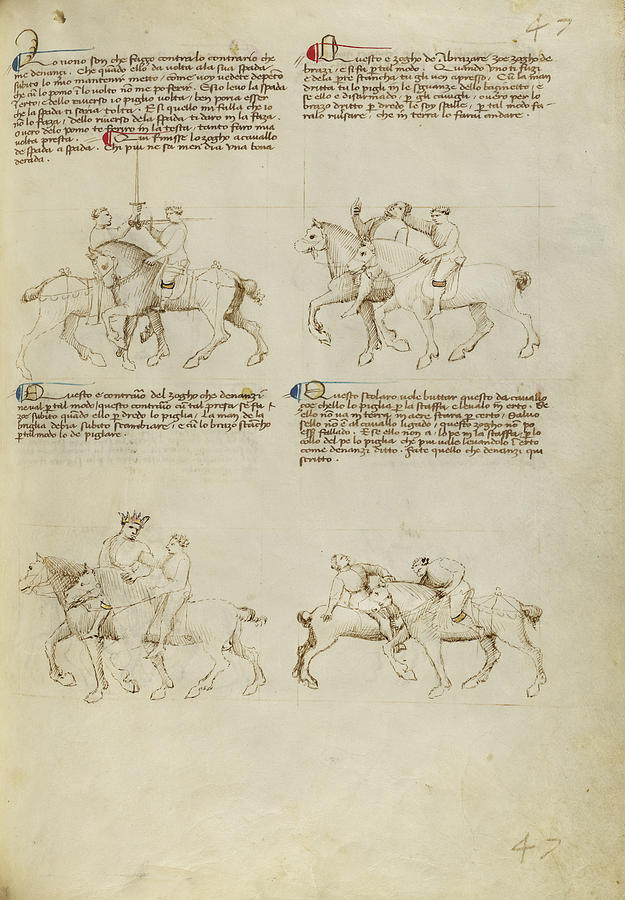 47
Io vono son che fuggo contra lo contrario che
me denançi. Che quãdo ello da volta ala sua spada
subito lo mio mantenir metto, come voy vedete depento
che cũ lo pomo ĩ lo volto nõ me po ferir. E si o levo la spada
ĩ erto, e dello riverso io piglio volta, ben poria esser
che la spada ti saria tolta. E si quello mi falla che io
nõ lo faza, dello riverso dela spada ti daro in la faza.
o uero delo pomo te feriro in la testa, tanto faro mia
volta presta. Qui finisse lo zogho a cavallo
de spada a spada. Chi piu ne sa men dia una bona
derada.
Questo e zogho de Abrazare zoe zogho de
brazi, e si fa p tal modo. Quando uno ti fuzi
e dela pte stancha tu gli ven apresso. Cũ la man
dritta tu lo pigli in le sguanze dello bagnetto, e
se ello e disarmado, p gli cavigli, o uero per lo
brazo dritto p dredo le soy spalle, p tal modo fa-
ralo riversare, che in terra lo farai andare.
Questo e contrario del zogho che denançi
ne va p tal modo questo contrario cũ tal presa se fa,
zoe subito quãdo ello p dredo lo piglia. La man de la
briglia debia subito scambiare, e cũ lo brazo stãcho
p tal modo lo de pigliare.
Questo scolaro vole buttar questo da cavallo
çoe chello lo piglia p la staffa e levalo in erto. Se
ello nõ va in terra, in aere stara p certo, Salvo
sello nõ e al cavallo ligado, questo zogho nõ po
ess' fallado. E se ello non a lo pe in la staffa, p lo
collo del pe lo piglia che piu vale levandolo ĩ erto
come denanzi ditto. fate quello che denanzi qui
scritto.
47